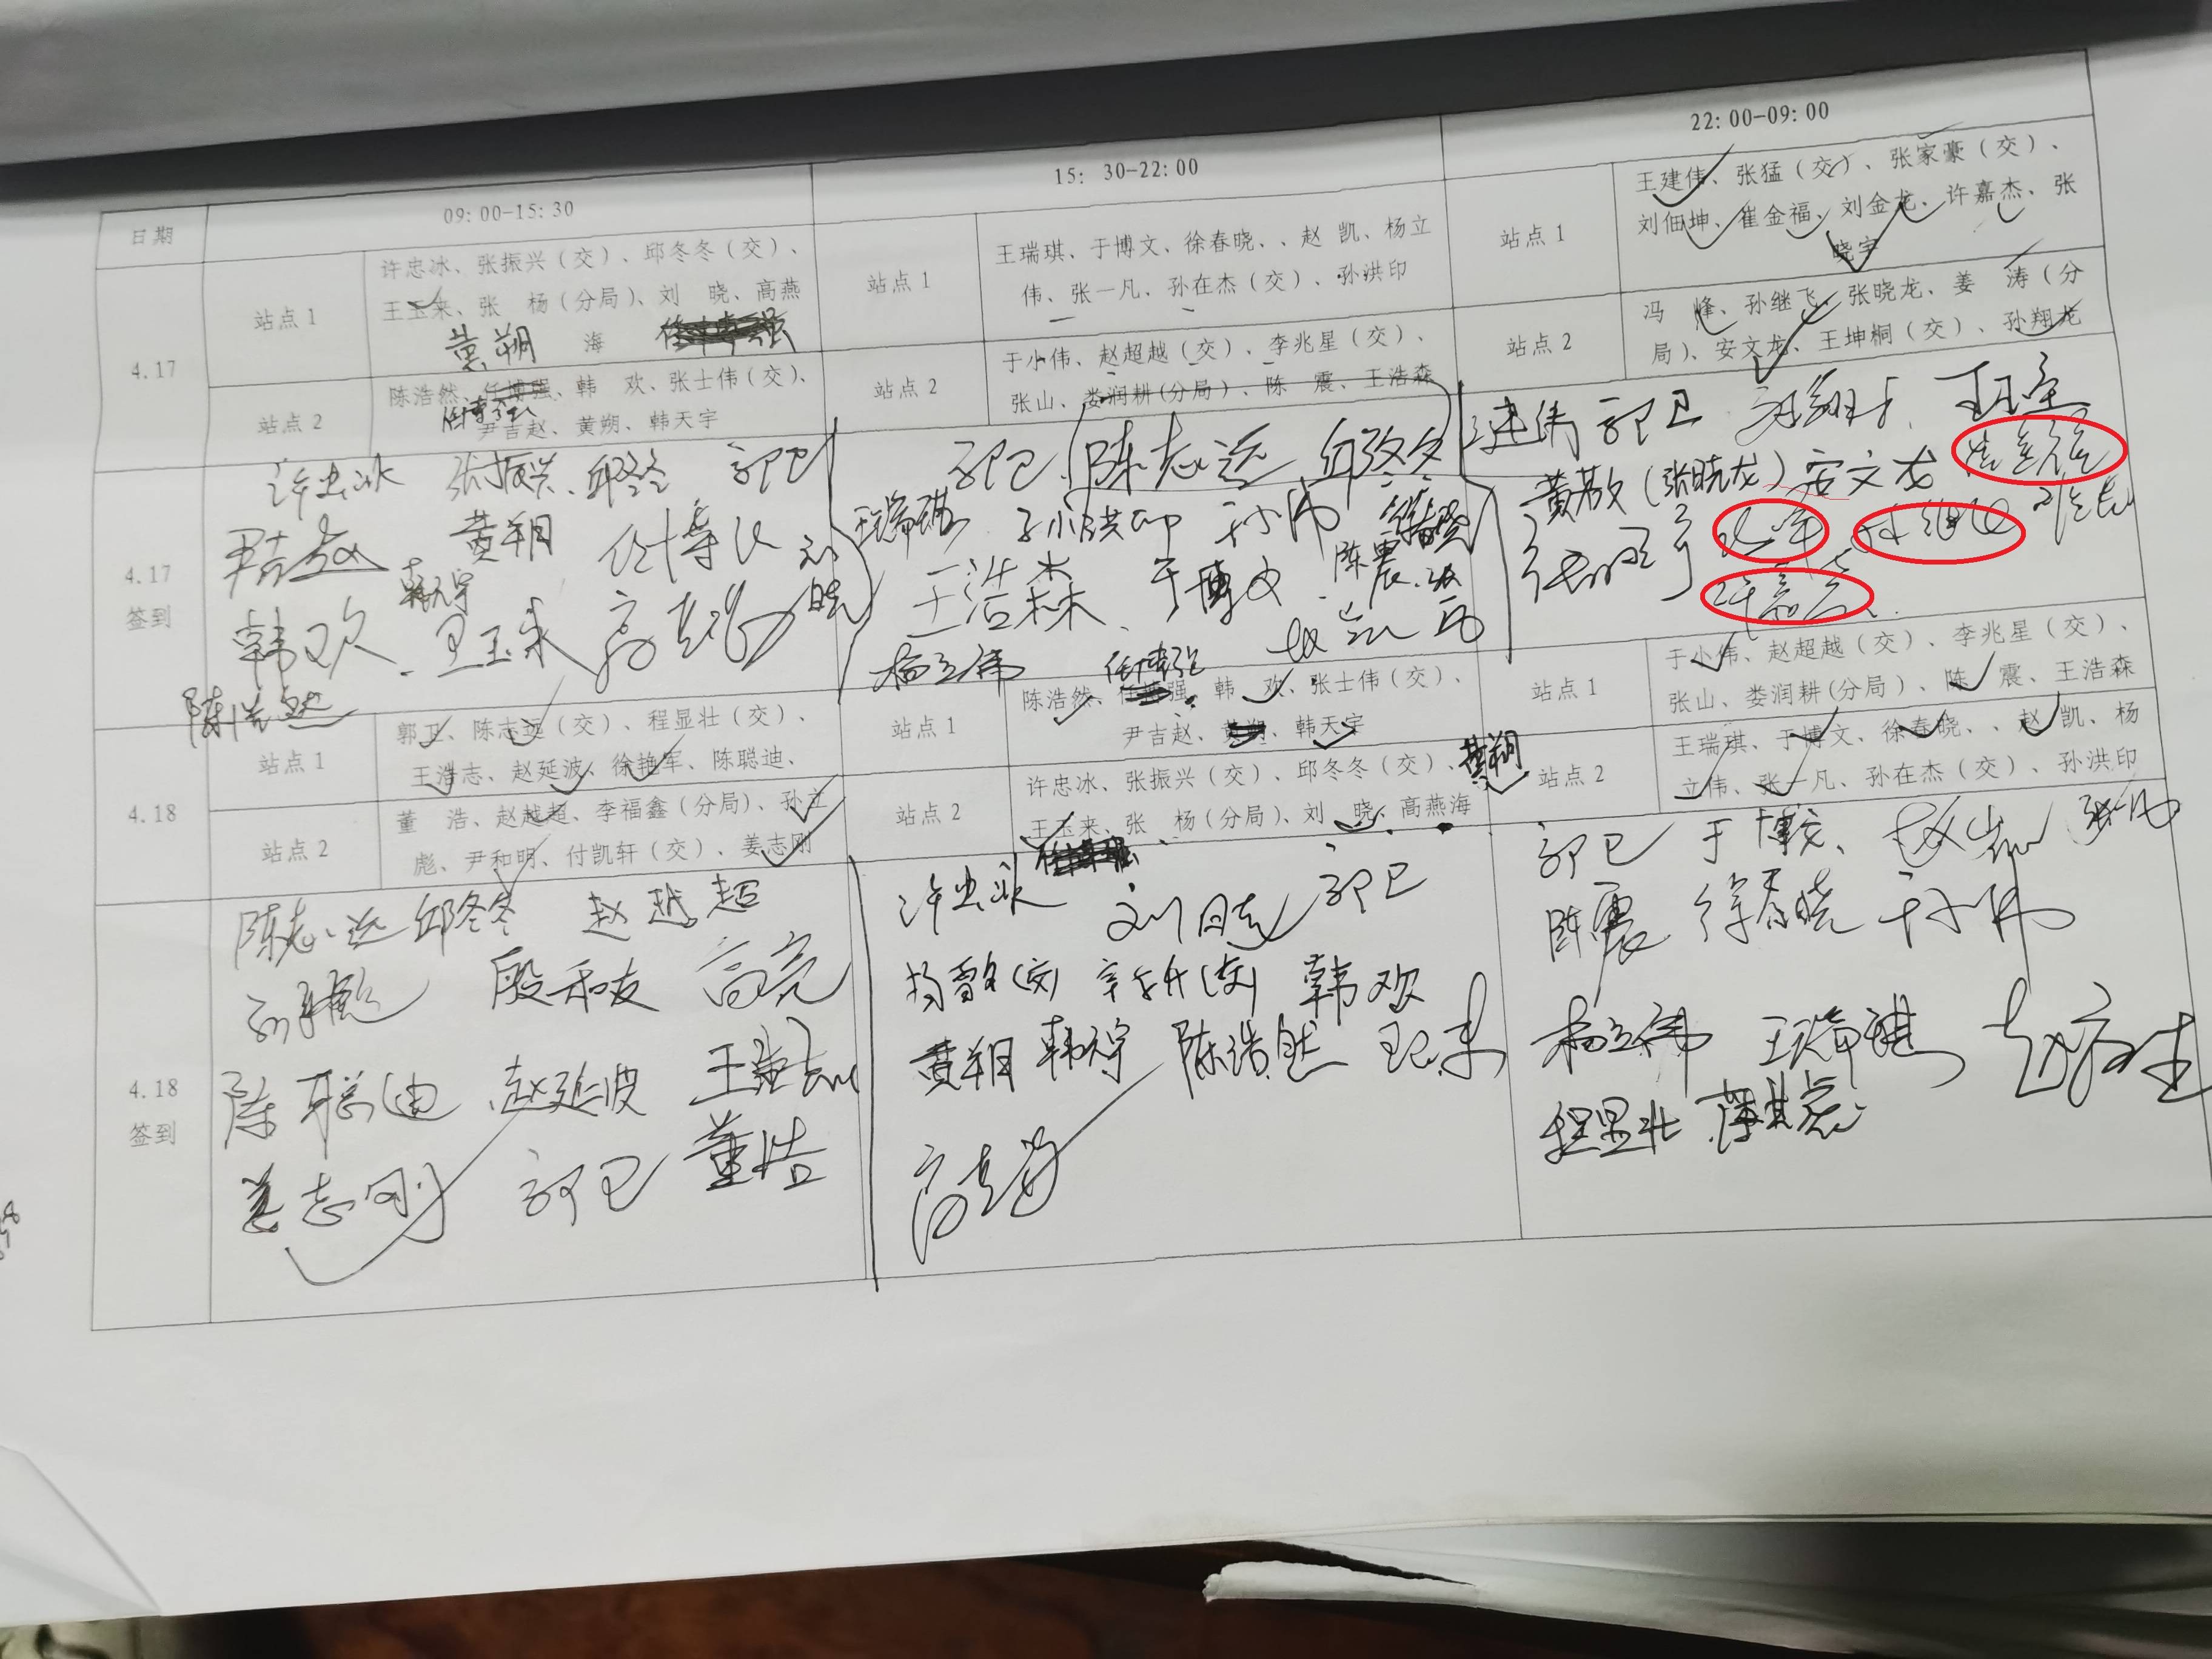 日期
09:00-15:30
15: 30-22:00
22:00-09:00
4.17
站点 1
许忠冰、张振兴（交）、邱冬冬（交）、
王玉来、张 杨（分局）、刘 晓、高燕
黄朔 海
站点 2
陈浩然、任博强、韩 欢、张士伟（交）、
尹吉赵、黄朔、韩天宇
站点 1
王瑞琪、于博文、徐春晓、、赵 凯、杨立
伟、张一凡、孙在杰（交）、孙洪印
站点 2
于小伟、赵超越（交）、李兆星（交）、
张山、娄润耕(分局）、陈 震、王浩森
站点 1
王建伟、张猛（交）、张家豪（交）、
刘佃坤、崔金福、刘金龙、许嘉杰、张
晓宇
站点 2
冯 烽、孙继飞、张晓龙、姜 涛（分
局）、安文龙、王坤桐（交）、孙翔龙
4.17
签到
许忠冰 张振兴、邱冬冬 郭卫
尹吉赵 黄朔 任博强 刘晓
韩欢、韩天宇 王玉来 高燕海
陈浩然
郭卫、陈志远
王瑞琪 孙洪印 徐春晓
王浩森、于博文 陈震
杨立伟 赵凯
建伟 郭卫
黄敬（张晓龙）安文龙
4.18
站点 1
郭卫、陈志远（交）、程显壮（交）、
王浩志、赵延波、徐艳军、陈聪迪、
站点 2
董 浩、赵越超、李福鑫（分局）、孙立
彪、尹和明、付凯轩（交）、姜志刚
站点 1
任博强
陈浩然、任博强、韩 欢、张士伟（交）、
尹吉赵、黄朔、韩天宇
站点 2
许忠冰、张振兴（交）、邱冬冬（交）、黄朔
王玉来、张 杨（分局）、刘 晓、高燕海
站点 1
于小伟、赵超越（交）、李兆星（交）、
张山、娄润耕(分局）、陈 震、王浩森
站点 2
王瑞琪、于博文、徐春晓、、赵 凯、杨
立伟、张一凡、孙在杰（交）、孙洪印
4.18
签到
陈志远 邱冬冬 赵越超
殷和友 高亮
陈聪迪 赵延波 王浩志
姜志刚 郭卫 董浩
许忠冰 刘晓 郭卫
韩欢
黄朔 韩天宇 陈浩然 王玉来
高燕海
郭卫 于博文、赵凯
陈震 徐春晓 于小伟
杨立伟 王瑞琪
程显壮